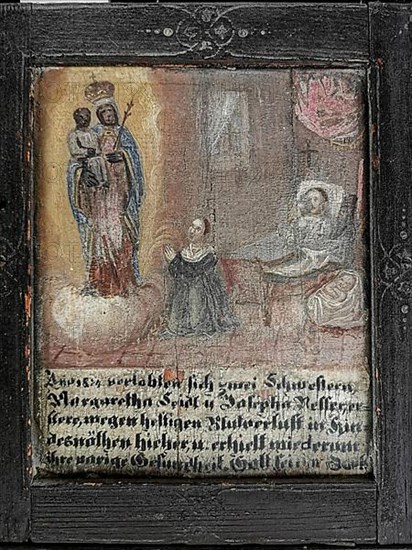 Ano 1874 verlobten sich zwei Schwestern
Margaretha Seidl u Josepha er-
stere, wegen heftigen Blutverlust in Kin
desnöthen hieher u. erhielt wiederum
ihre vorige Gesundheit. Gott sei Dank